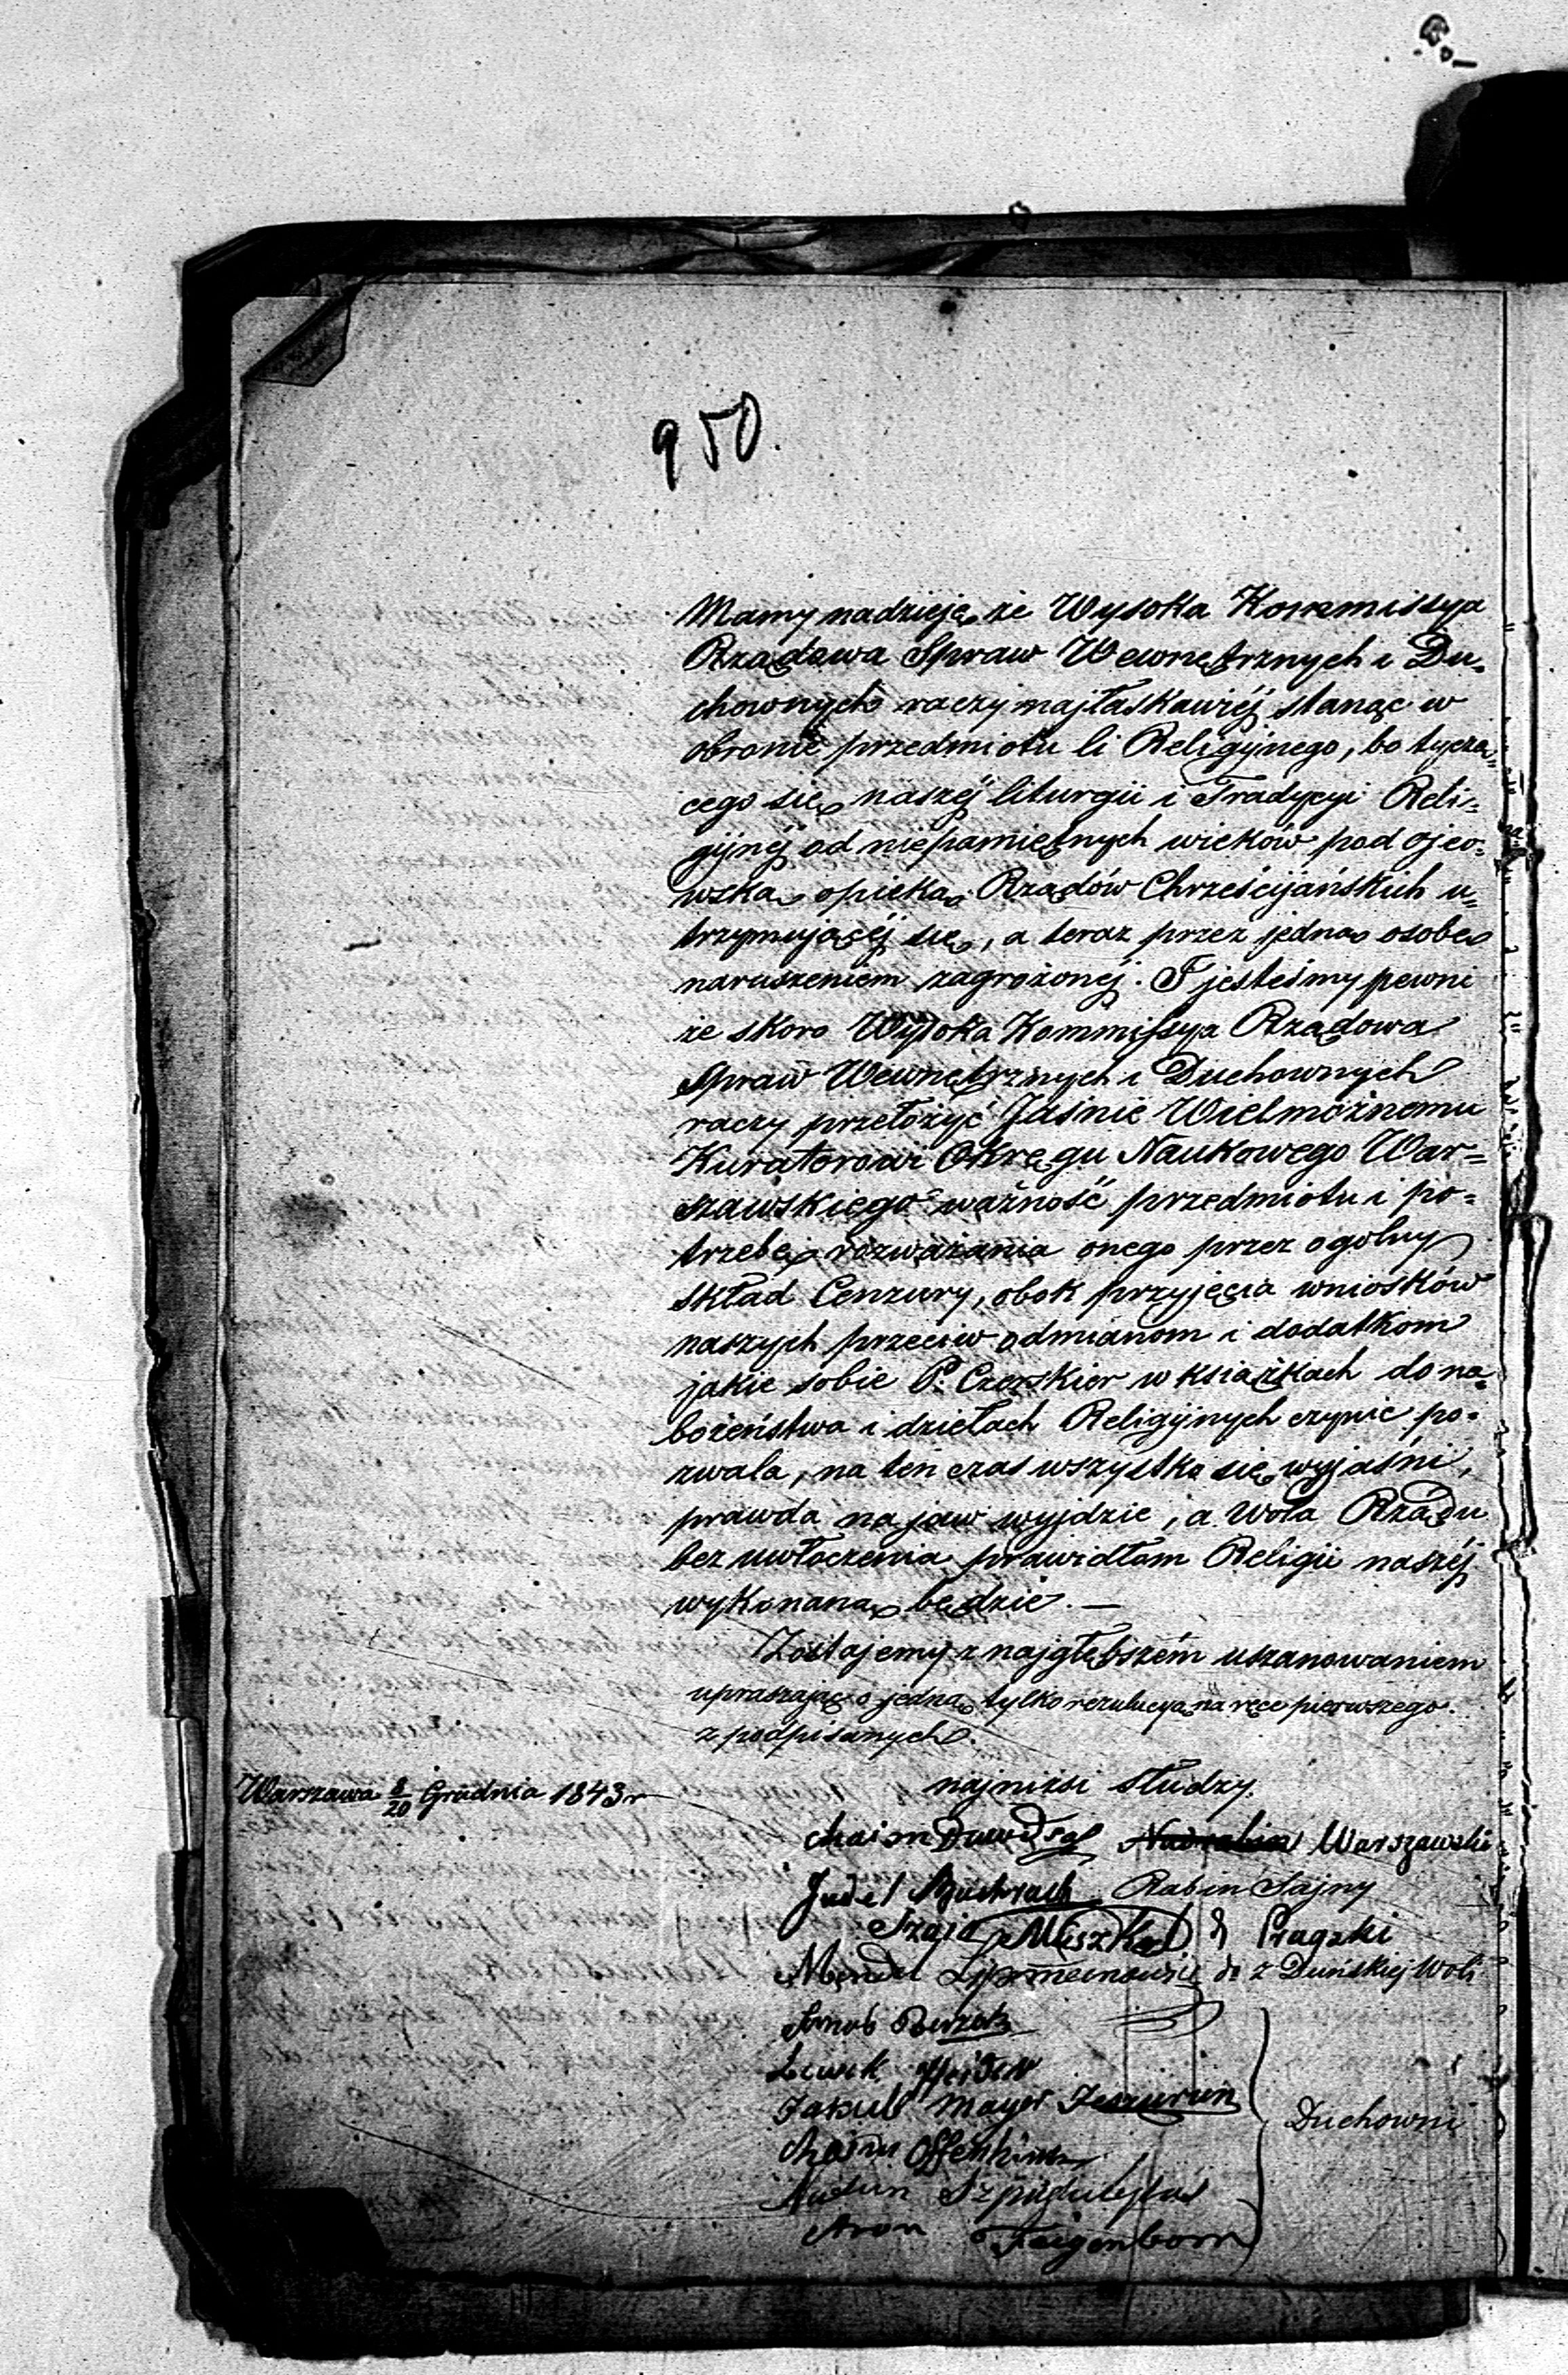 950.
Mamy nadzieję że Wysoka Kommissya
Rządowa Spraw Wewnętrznych i Du-
chownych raczy najłaskawiéj stanąć w
obronie przedmiotu li Religijnego, bo tycza-
cego się naszéj liturgii i Tradycyi Reli-
gijnéj od niepamiętnych wieków pod ojco-
wską opieką Rządów Chrześcijańskich u-
trzymującéj się, a teraz przez jedną osobę
naruszeniem zagrożonej. I jesteśmy pewni
że skoro Wysoka Kommissya Rządowa
Spraw Wewnętrznych i Duchownych
raczy przełożyć Jaśnie Wielmożnemu
Kuratorowi Okręgu Naukowego War-
szawskiego ważność przedmiotu i po-
trzebę rozważania onego przez ogolny
skład Cenzury, obok przyjęcia wniosków
naszych przeciw odmianom i dodatkom
jakie sobie P. Czerskier w książkach do na-
bożeństwa i dziełach Religijnych czynić po-
zwala, na ten czas wszystko się wyjaśni,
prawda na jaw wyjdzie, a wola Rządu
bez uwłoczenia prawidłom Religii naszéj
wykonaną będzie. —
Zostajemy z najgłębszém uszanowaniem
upraszając o jedną tylko rezulucyą na ręce pierwszego
z podpisanych.
Warszawa 8/20 Grudnia 1843 r
najniżsi słudzy
Chaim Dawidsohn Nadrabin Warszawski
Judel Bachrach Rabin Sajny
Szaja Muszkat d Pragski
Mendel do z Duńskiej Woli
Lewek
Jakub Mayer Jeszurun
Duchowni
Chaim
Nutan
Aron Feigenbom